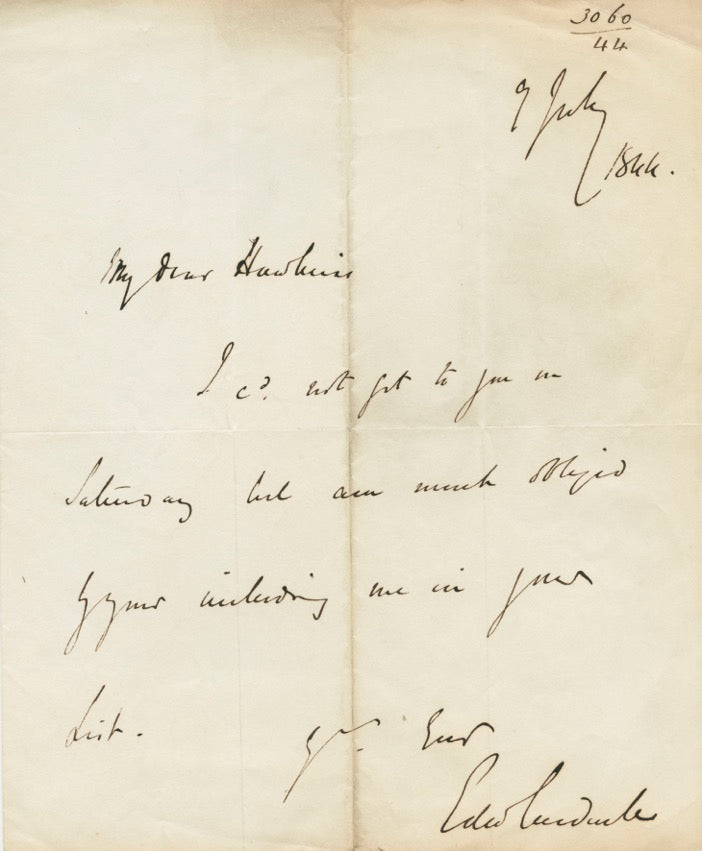 3060
44
9 July
1844.
My dear Hawkins
I cd. not get to you on
Saturday but am much obliged
by your including me in your
List.
yrs. Ever